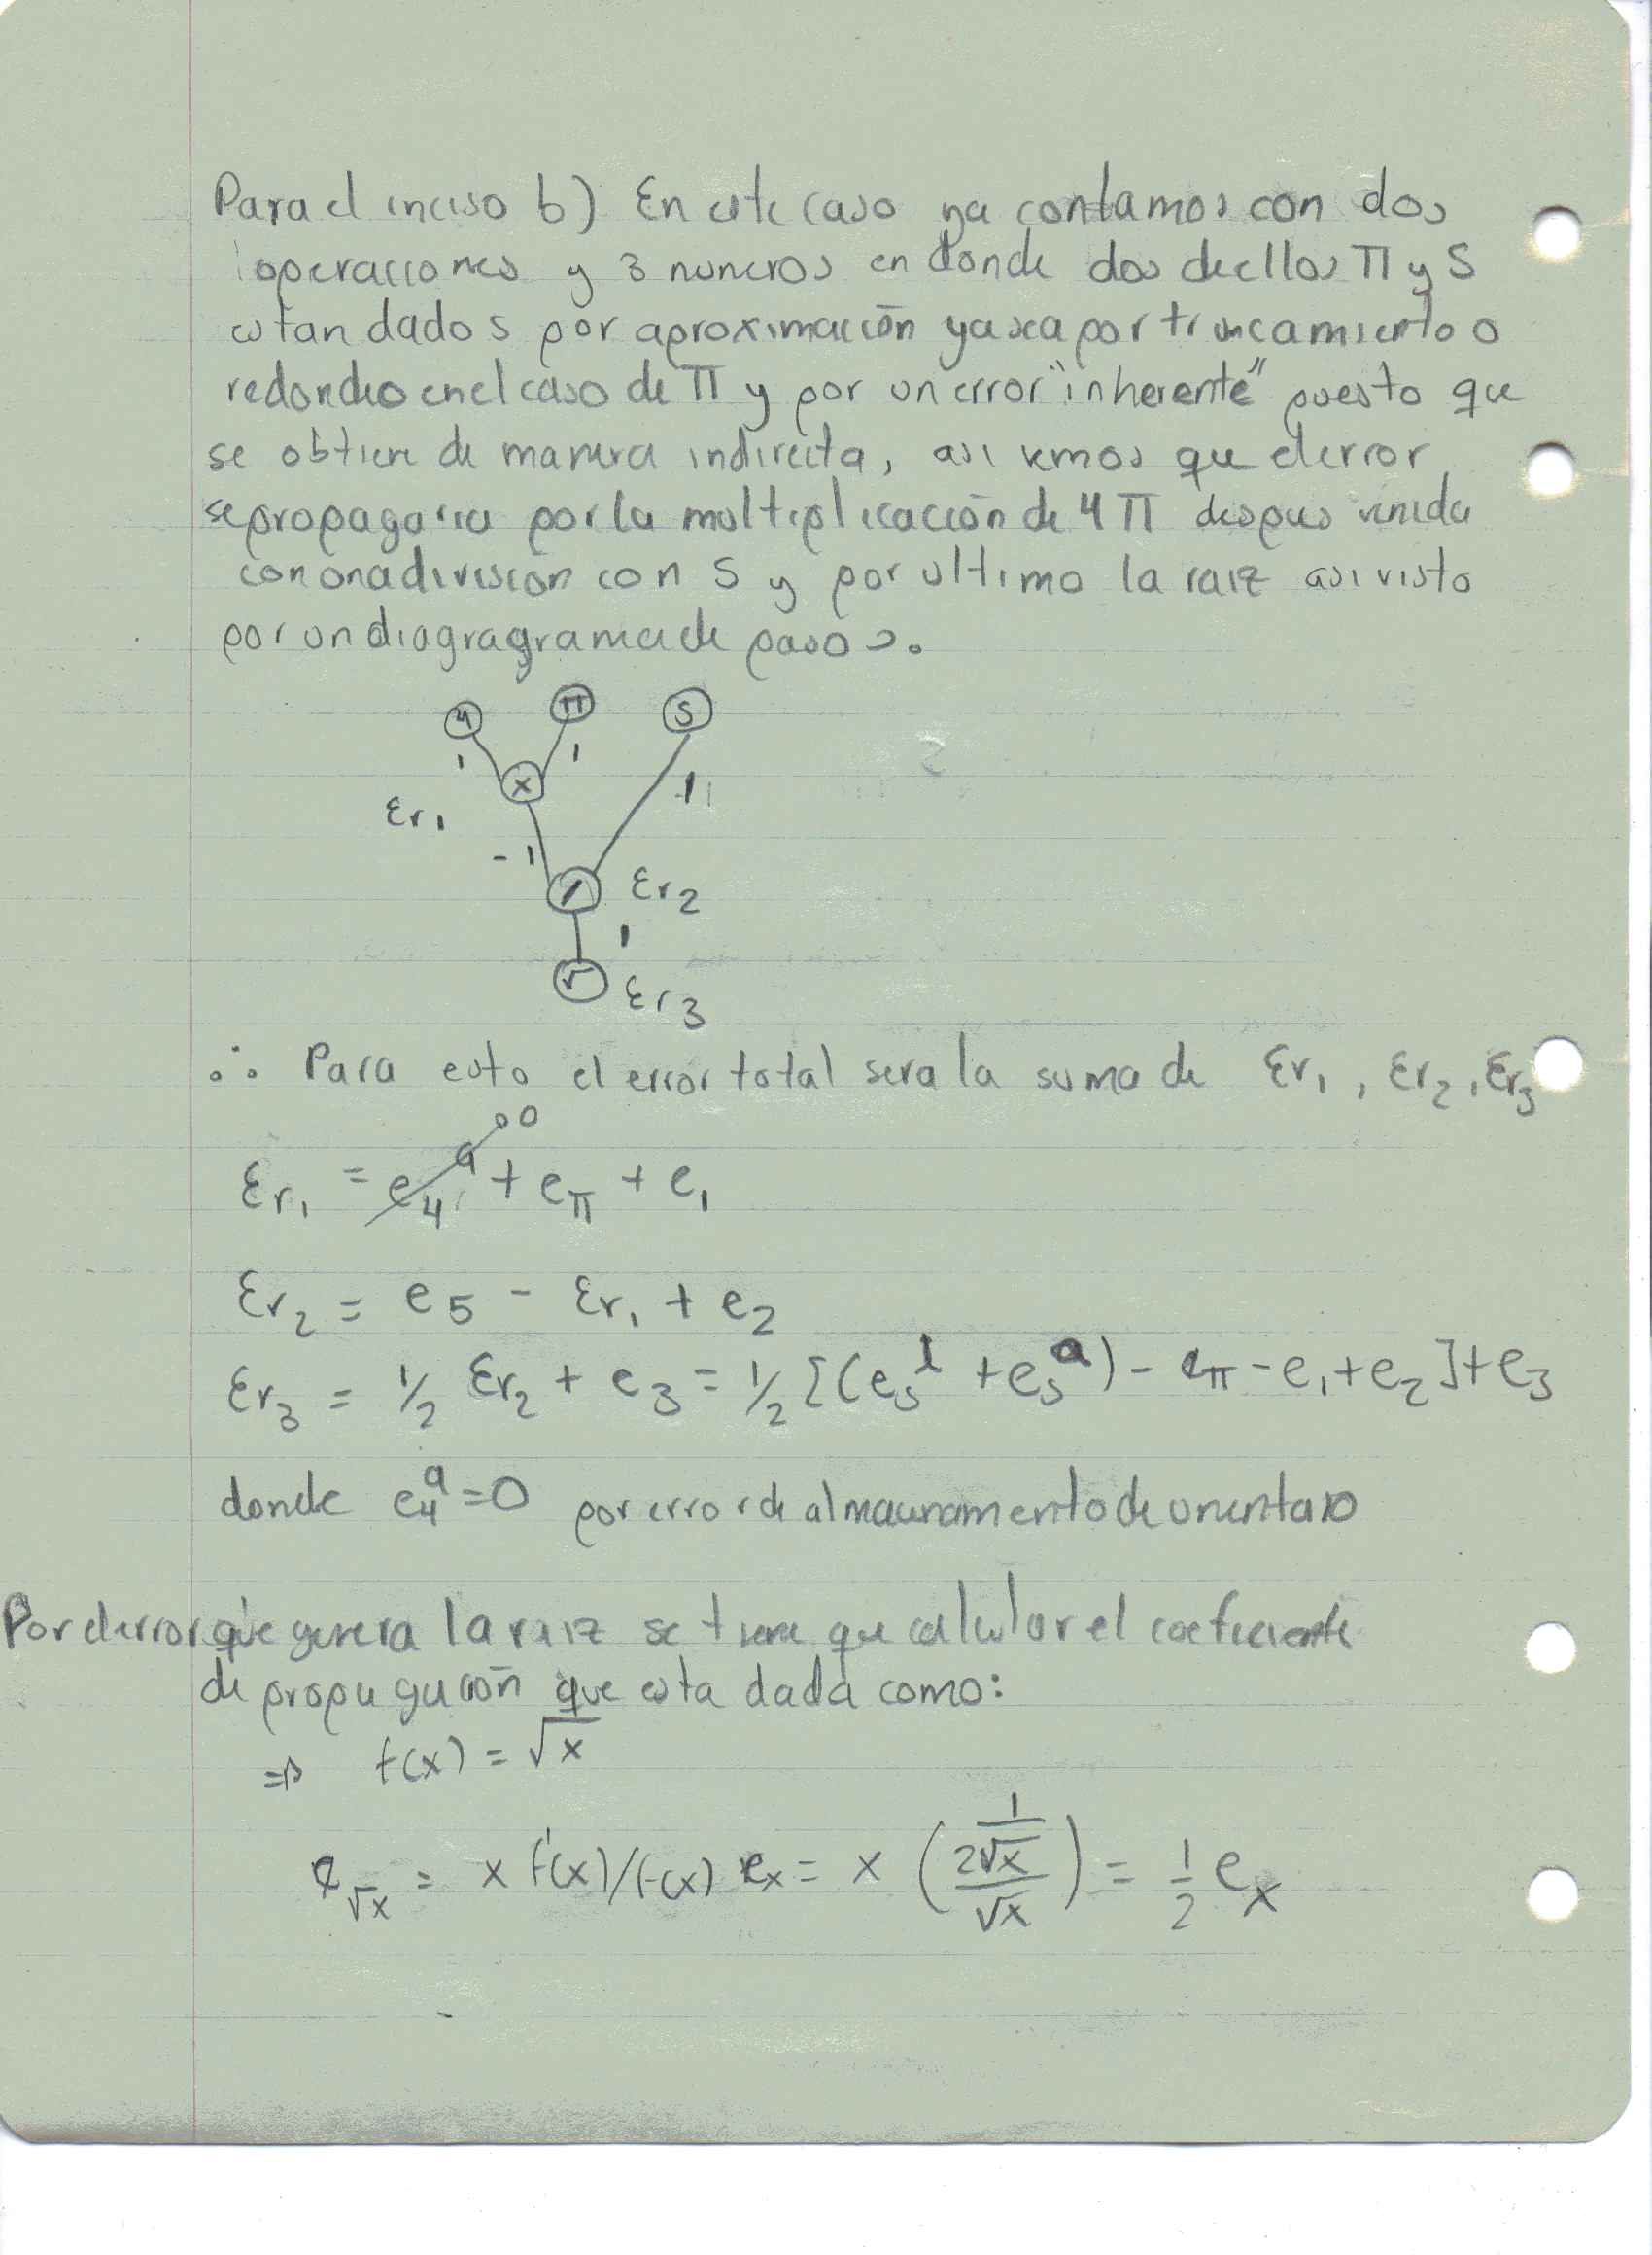 Para el inciso b) En este caso ya contamos con dos
operaciones y 3 numeros en donde dos de ellos π y S
estan dados por aproximación ya sea por truncamiento o
redondeo en el caso de π y por un error "inherente" puesto que
se obtiene de manera indirecta, asi vemos que el error
se propagaria por la multiplicación de 4π despues venida
con una división con S y por ultimo la raiz asi visto
por un diagragrama de pasos.
4 π S
1 1
x
-1 1
Er1
/ Er2
1
√ Er3
∴ Para esto el error total sera la suma de Er1, Er2, Er3
Er1 = e4^a→0 + eπ + e1
Er2 = e5 - Er1 + e2
Er3 = 1/2 Er2 + e3 = 1/2 [(es^i + es^a) - eπ - e1 + e2] + e3
donde e4^a = 0 por error de almacenamento de un entaro
Por el error que genera la raiz se tiene que calcular el coeficiente
de propagación que esta dada como:
⇒ f(x) = √x
e√x = x f'(x)/f(x) ex = x ((1/(2√x))/√x) = 1/2 ex